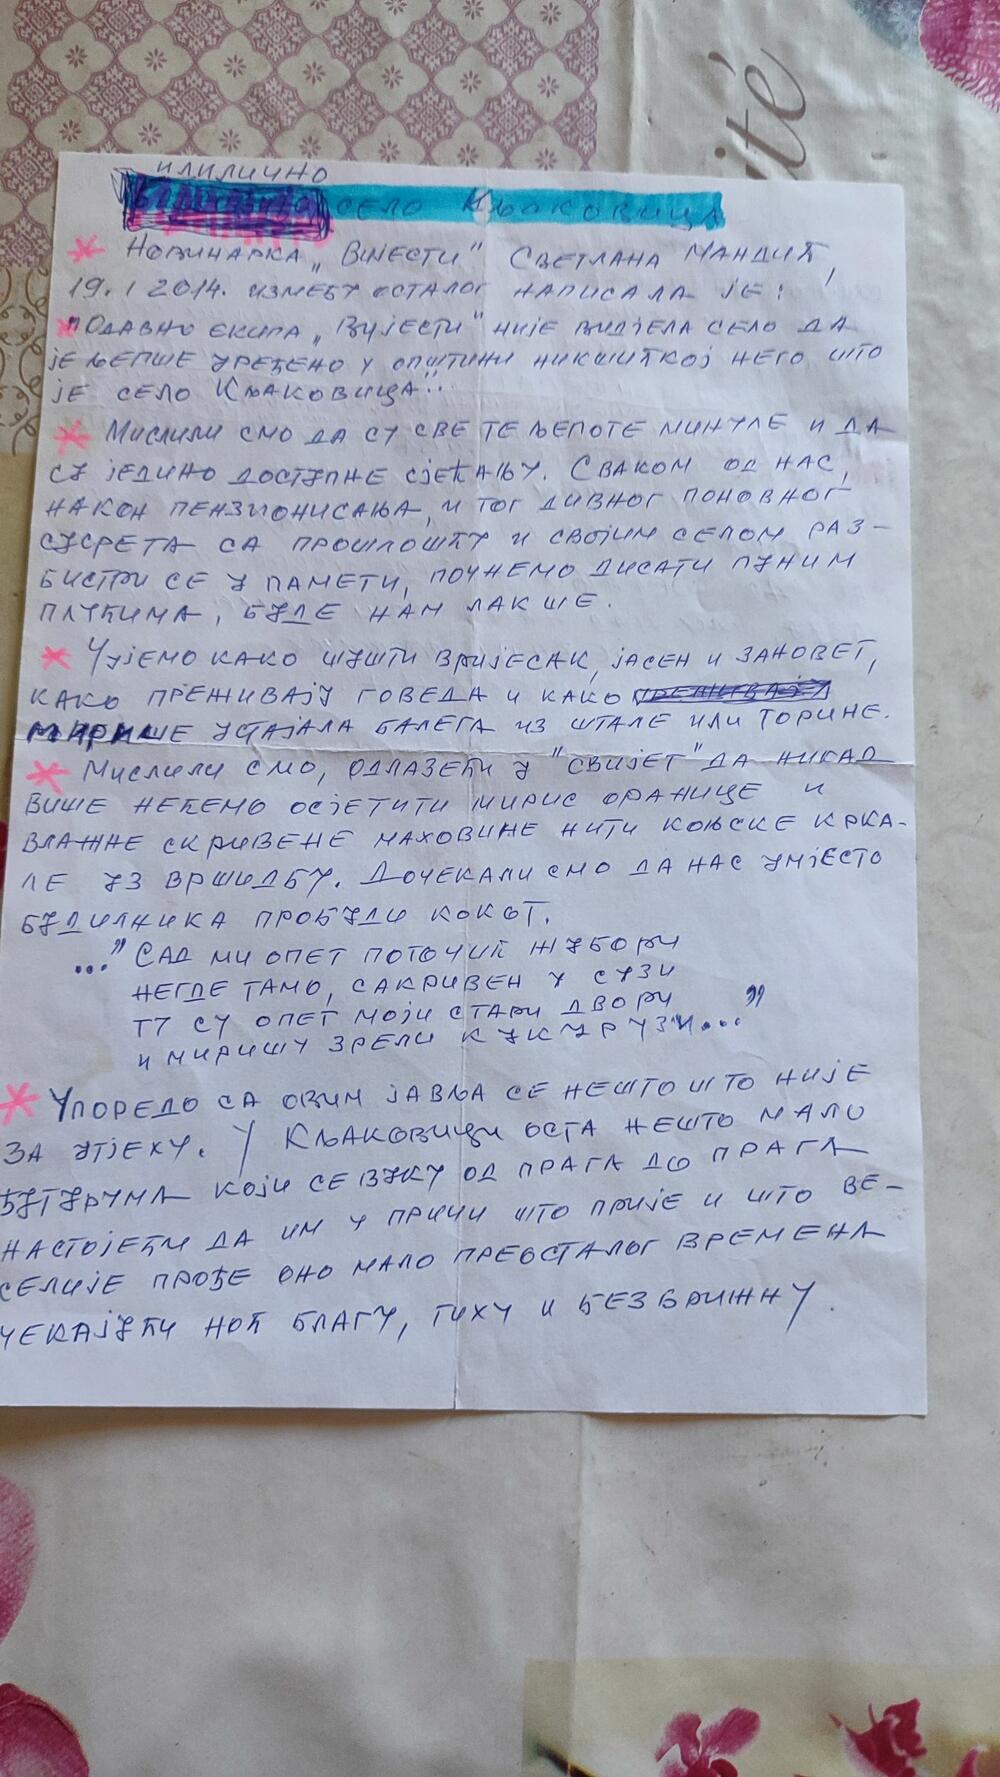 ité
ИДИЛИЧНО
СЕЛО КЊАКОВИЦА
* НОВИНАРКА „ВИЈЕСТИ" СВЕТЛАНА МАНДИЋ,
19.1 2014. ИЗМЕЂУ ОСТАЛОГ НАПИСАЛА ЈЕ:
* "ПОДАВНО ЕКИПА „ВИЈЕСТИ" НИЈЕ ВИДЈЕЛА СЕЛО ДА
ЈЕ ЉЕПШЕ УРЕЂЕНО У ОПШТИНИ НИКШИЋКОЈ НЕГО ШТО
ЈЕ СЕЛО КЊАКОВИЦА"..
* МИСЛИЛИ СМО ДА СУ СВЕ ТЕ ЉЕПОТЕ МИНУЛЕ И ДА
СУ ЈЕДИНО ДОСТУПНЕ СЈЕЋАЊУ. СВАКОМ ОД НАС,
НАКОН ПЕНЗИОНИСАЊА, И ТОГ ДИВНОГ ПОНОВНОГ
СУСРЕТА СА ПРОШЛОШЋУ И СВОЈИМ СЕЛОМ РАЗ-
БИСТРИ СЕ У ПАМЕТИ, ПОЧНЕМО ДИСАТИ ПУНИМ
ПЛУЋИМА, БУДЕ НАМ ЛАКШЕ.
* ЧУЈЕМО КАКО ШУШТИ ВРИЈЕСАК, ЈАСЕН И ЗАНОВЕТ,
КАКО ПРЕЖИВАЈУ ГОВЕДА И КАКО
МИРИШЕ УСТАЈАЛА БАЛЕГА ИЗ ШТАЛЕ ИЛИ ТОРИНЕ.
* МИСЛИЛИ СМО, ОДЛАЗЕЋИ У "СВИЈЕТ" ДА НИКАД
ВИШЕ НЕЋЕМО ОСЈЕТИТИ МИРИС ОРАНИЦЕ И
ВЛАЖНЕ СКРИВЕНЕ МАХОВИНЕ НИТИ КОЊСКЕ КРКА-
ЛЕ УЗ ВРШИДБУ. ДОЧЕКАЛИ СМО ДА НАС УМЈЕСТО
БУДИЛНИКА ПРОБУДИ КОКОТ.
..." САД МИ ОПЕТ ПОТОЧИЋ ЖУБОРИ
НЕГДЕ ТАМО, САКРИВЕН У СУЗИ
ТУ СУ ОПЕТ МОЈИ СТАРИ ДВОРИ
И МИРИШУ ЗРЕЛИ КУКУРУЗИ..."
* УПОРЕДО СА ОВИМ ЈАВЉА СЕ НЕШТО ШТО НИЈЕ
ЗА УТЈЕХУ. У КЊАКОВИЦИ ОСТА НЕШТО МАЛО
БУТУРУМА КОЈИ СЕ ВУКУ ОД ПРАГА ДО ПРАГА
НАСТОЈЕЋИ ДА ИМ У ПРИЧИ ШТО ПРИЈЕ И ШТО ВЕ-
СЕЛИЈЕ ПРОЂЕ ОНО МАЛО ПРЕОСТАЛОГ ВРЕМЕНА
ЧЕКАЈУЋИ НОЋ БЛАГУ, ТИХУ И БЕЗБРИЖНУ.